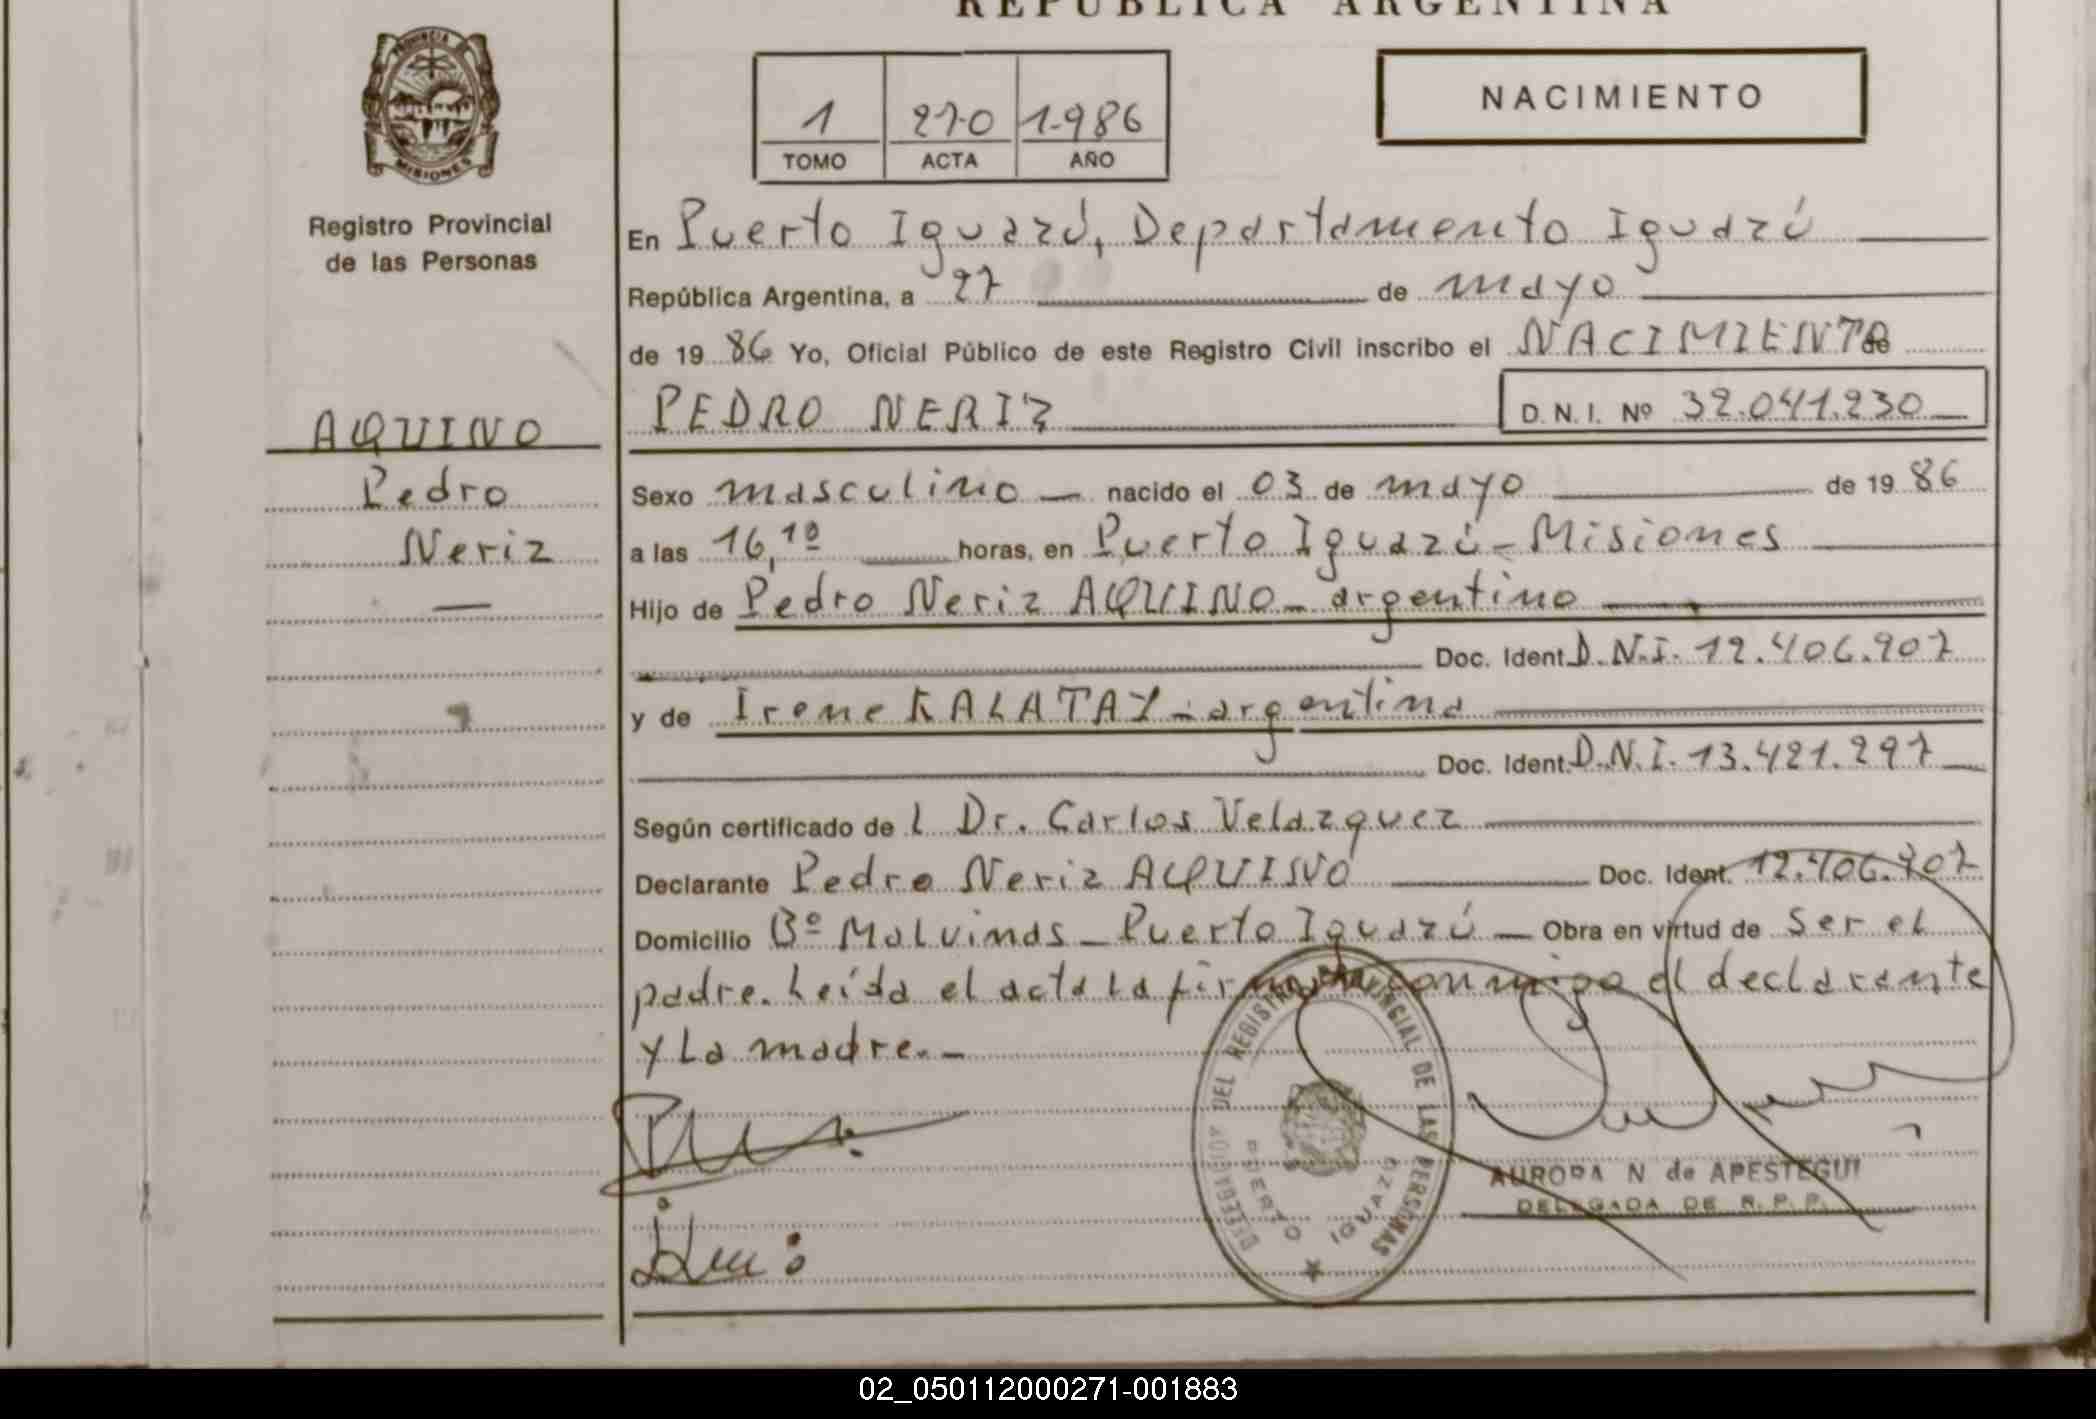 REPUBLICA ARGENTINA
PROVINCIA DE
MISIONES
Registro Provincial
de las Personas
1 270 1986
TOMO ACTA AÑO
NACIMIENTO
En Puerto Iguazú, Departamento Iguazú
República Argentina, a 27 de mayo
de 19 86 Yo, Oficial Público de este Registro Civil inscribo el NACIMIENTO de
PEDRO NERIZ D.N.I. Nº 32.041.230
AQUINO
Pedro
Neriz
Sexo masculino nacido el 03 de mayo de 19 86
a las 16,10 horas, en Puerto Iguazú - Misiones
Hijo de Pedro Neriz AQUINO - argentino
Doc. Ident. D.N.I. 12.406.907
y de Irene KALATAY - argentina
Doc. Ident. D.N.I. 13.421.297
Según certificado de l Dr. Carlos Velazquez
Declarante Pedro Neriz AQUINO Doc. Ident. 12.406.907
Domicilio Bº Malvinas - Puerto Iguazú - Obra en virtud de ser el
padre. Leída el acta la firma conmigo el declarante
y la madre. -
DELEGACION DEL REGISTRO PROVINCIAL DE LAS PERSONAS
PUERTO IGUAZU
AURORA N de APESTEGUI
DELEGADA DE R.P.P.
02_050112000271-001883